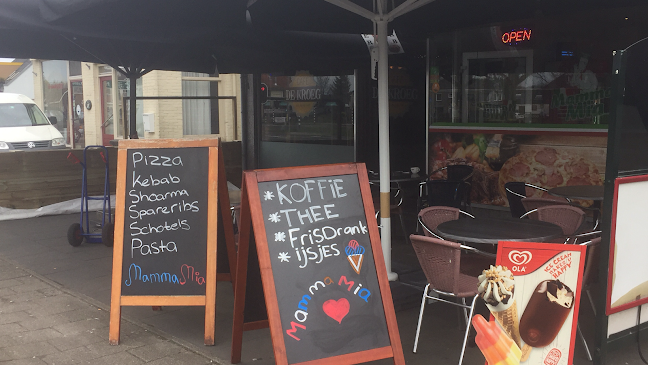 OPEN
DE KROEG
Pizza
Kebab
Shoarma
Spareribs
Schotels
Pasta
MammaMia
*KOFFIE
*THEE
*FrisDrank
*ijsjes
Mamma Mia
OLA
ICE CREAM
MAKES YOU
HAPPY